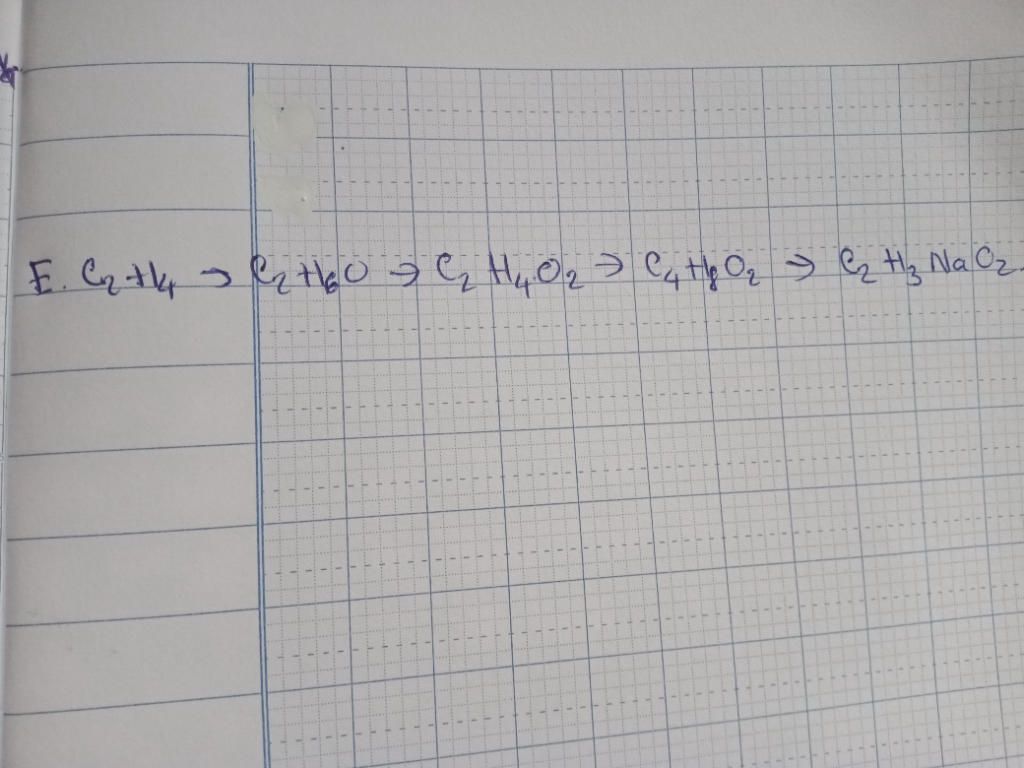 E. C₂H₄ → C₂H₆O → C₂H₄O₂ → C₄H₈O₂ → C₂H₃NaO₂.